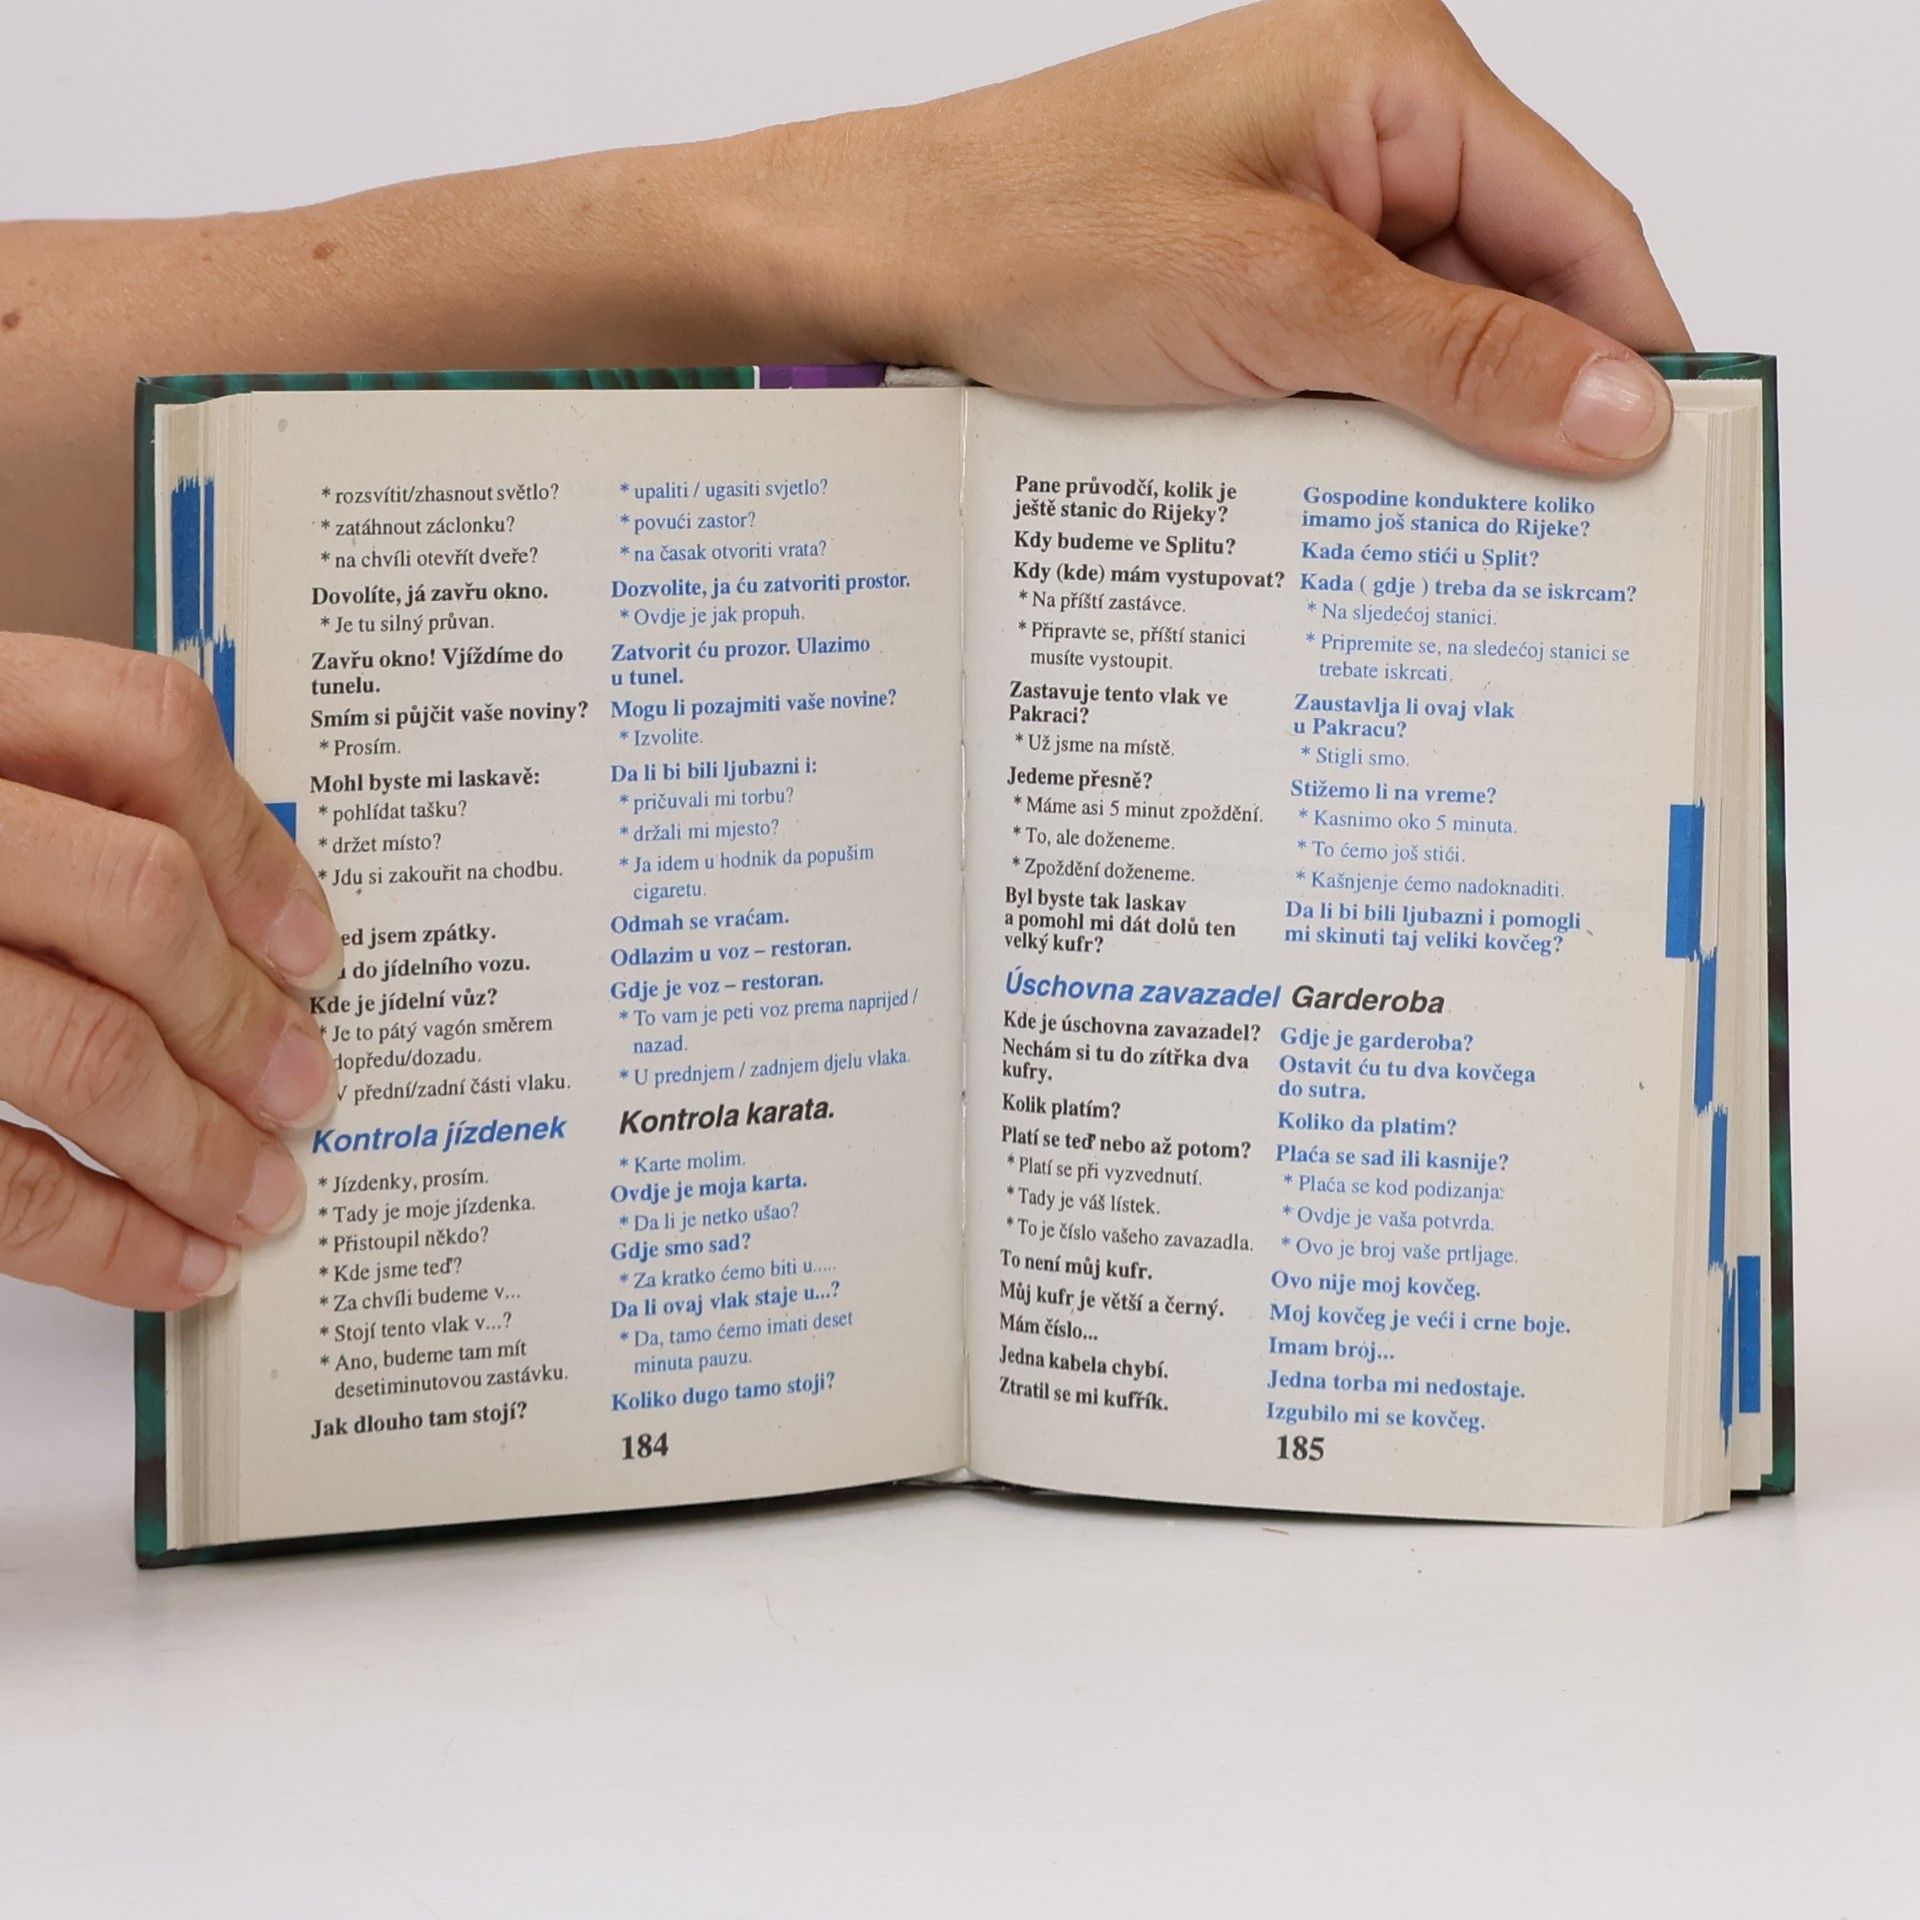 * rozsvítit/zhasnout světlo?
* zatáhnout záclonku?
* na chvíli otevřít dveře?
Dovolíte, já zavřu okno.
* Je tu silný průvan.
Zavřu okno! Vjíždíme do
tunelu.
Smím si půjčit vaše noviny?
* Prosím.
Mohl byste mi laskavě:
* pohlídat tašku?
* držet místo?
* Jdu si zakouřit na chodbu.
jsem zpátky.
do jídelního vozu.
Kde je jídelní vůz?
* Je to pátý vagón směrem
dopředu/dozadu.
V přední/zadní části vlaku.
Kontrola jízdenek
* Jízdenky, prosím.
* Tady je moje jízdenka.
* Přistoupil někdo?
* Kde jsme teď?
* Za chvíli budeme v...
* Stojí tento vlak v...?
* Ano, budeme tam mít
desetiminutovou zastávku.
Jak dlouho tam stojí?
* upaliti / ugasiti svjetlo?
* povući zastor?
* na časak otvoriti vrata?
Dozvolite, ja ću zatvoriti prostor.
* Ovdje je jak propuh.
Zatvorit ću prozor. Ulazimo
u tunel.
Mogu li pozajmiti vaše novine?
* Izvolite.
Da li bi bili ljubazni i:
* pričuvali mi torbu?
* držali mi mjesto?
* Ja idem u hodnik da popušim
cigaretu.
Odmah se vraćam.
Odlazim u voz – restoran.
Gdje je voz – restoran.
* To vam je peti voz prema naprijed /
nazad.
* U prednjem / zadnjem djelu vlaka.
Kontrola karata.
* Karte molim.
Ovdje je moja karta.
* Da li je netko ušao?
Gdje smo sad?
* Za kratko ćemo biti u.....
Da li ovaj vlak staje u...?
* Da, tamo ćemo imati deset
minuta pauzu.
Koliko dugo tamo stoji?
184
Pane průvodčí, kolik je
ještě stanic do Rijeky?
Kdy budeme ve Splitu?
Kdy (kde) mám vystupovat?
* Na příští zastávce.
* Připravte se, příští stanici
musíte vystoupit.
Zastavuje tento vlak ve
Pakraci?
* Už jsme na místě.
Jedeme přesně?
* Máme asi 5 minut zpoždění.
* To, ale doženeme.
* Zpoždění doženeme.
Byl byste tak laskav
a pomohl mi dát dolů ten
velký kufr?
Gospodine konduktere koliko
imamo još stanica do Rijeke?
Kada ćemo stići u Split?
Kada ( gdje ) treba da se iskrcam?
* Na sljedećoj stanici.
* Pripremite se, na sledećoj stanici se
trebate iskrcati.
Zaustavlja li ovaj vlak
u Pakracu?
* Stigli smo.
Stižemo li na vreme?
* Kasnimo oko 5 minuta.
* To ćemo još stići.
* Kašnjenje ćemo nadoknaditi.
Da li bi bili ljubazni i pomogli
mi skinuti taj veliki kovčeg?
Úschovna zavazadel Garderoba
Kde je úschovna zavazadel?
Nechám si tu do zítřka dva
kufry.
Kolik platím?
Platí se teď nebo až potom?
* Platí se při vyzvednutí.
* Tady je váš lístek.
* To je číslo vašeho zavazadla.
To není můj kufr.
Můj kufr je větší a černý.
Mám číslo...
Jedna kabela chybí.
Ztratil se mi kufřík.
Gdje je garderoba?
Ostavit ću tu dva kovčega
do sutra.
Koliko da platim?
Plaća se sad ili kasnije?
* Plaća se kod podizanja.
* Ovdje je vaša potvrda.
* Ovo je broj vaše prtljage.
Ovo nije moj kovčeg.
Moj kovčeg je veći i crne boje.
Imam broj...
Jedna torba mi nedostaje.
Izgubilo mi se kovčeg.
185